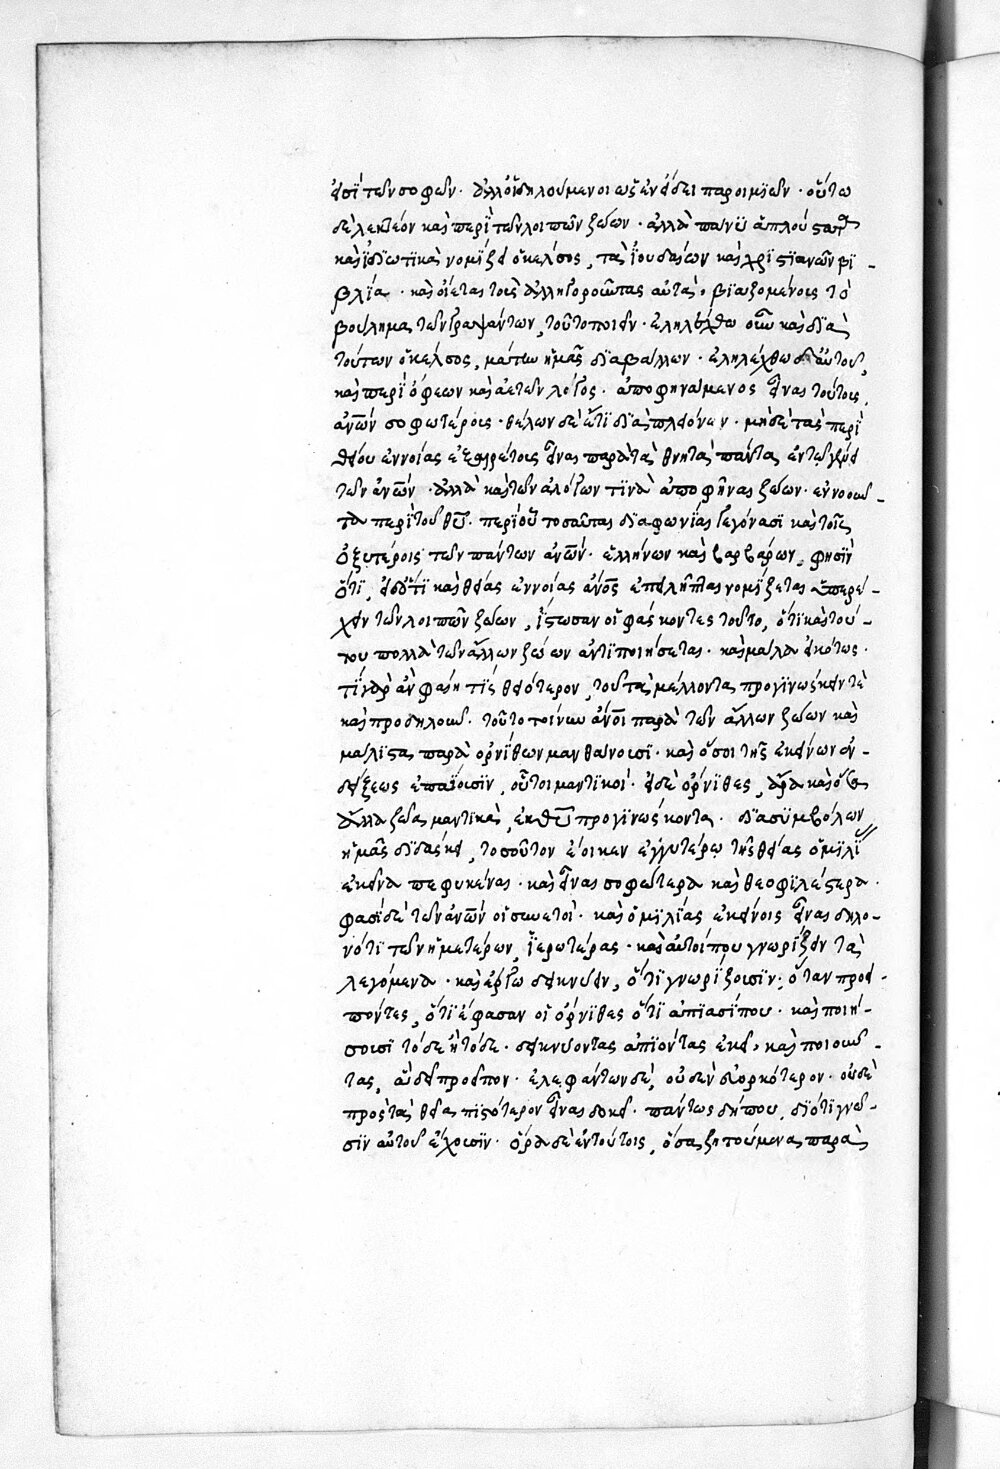 εἰσὶ τῶν σοφῶν · ἀλλ' οἱ δηλούμενοι ὡς ἐν εἴδει παροιμιῶν · οὕτω
δὲ λεκτέον καὶ περὶ τῶν λοιπῶν ζώων · ἀλλὰ πάνυ ἁπλούστατα
καὶ ἰδιωτικὰ νομίζει ὁ κέλσος, τὰ ἰουδαίων καὶ χριστιανῶν βι-
βλία · καὶ οἴεται τοὺς ἀλληγοροῦντας αὐτὰ, βιαζομένους τὸ
βούλημα τῶν γραψάντων, τοῦτο ποιεῖν · ἐληλέγχθω οὖν καὶ διὰ
τούτων ὁ κέλσος, μάτην ἡμᾶς διαβάλλων · ἐληλέγχθω δὲ αὐτοῦ,
καὶ περὶ ὄφεων καὶ ἀετῶν λόγος · ἀποφηνάμενος εἶναι τούτους,
ἀνῶν σοφωτέρους · θέλων δὲ ἔτι διὰ πλειόνων · μηδὲ τὰς περὶ
θείου ἐννοίας ἐξαιρέτους εἶναι παρὰ τὰ θνητὰ πάντα ἐν τῷ γένει
τῶν ἀνῶν · ἀλλὰ καὶ τῶν ἀλόγων τινὰ ἀποφῆναι ζώων · ἐννοοῦν-
τα περὶ τοῦ θῦ · περὶ οὗ τοσαῦται διαφωνίαι γεγόνασι καὶ τοῖς
ὀξυτέροις τῶν πάντων ἀνῶν · ἑλλήνων καὶ βαρβάρων, φησὶν
ὅτι, εἰ δ' ὅτι καὶ θείας ἐννοίας ἄνος ἐπείληπται νομίζεται ὑπερέ-
χειν τῶν λοιπῶν ζώων, ἴστωσαν οἱ φάσκοντες τοῦτο, ὅτι καὶ τού-
του πολλὰ τῶν ἄλλων ζώων ἀντιποιήσεται · καὶ μάλα εἰκότως ·
τί γὰρ ἂν φαίη τις θειότερον, τοῦ τὰ μέλλοντα προγινώσκειν τὲ
καὶ προδηλοῦν · τοῦτο τοίνυν ἄνοι παρὰ τῶν ἄλλων ζώων καὶ
μάλιστα παρὰ ὀρνίθων μανθάνουσι · καὶ ὅσοι τῆς ἐκείνων ἐν-
δείξεως ἐπαΐουσιν, οὗτοι μαντικοί · εἰ δὲ ὄρνιθες, ἄρα καὶ ὅσα
ἄλλα ζῶα μαντικὰ, ἐκ θῦ προγινώσκοντα · διὰ συμβόλων
ἡμᾶς διδάσκει, τοσοῦτον ἔοικεν ἐγγυτέρω τῆς θείας ὁμιλίας
ἐκεῖνα πεφυκέναι · καὶ εἶναι σοφώτερα καὶ θεοφιλέστερα ·
φασὶ δὲ τῶν ἀνῶν οἱ συνετοὶ · καὶ ὁμιλίας ἐκείνοις εἶναι δηλο-
νότι τῶν ἡμετέρων, ἱερωτέρας · καὶ αὐτοί που γνωρίζειν τὰ
λεγόμενα · καὶ ἔργῳ δεικνύειν, ὅτι γνωρίζουσιν · ὅταν προει-
πόντες, ὅτι ἔφασαν οἱ ὄρνιθες ὅτι ἀπίασί που · καὶ ποιή-
σουσι τόδε ἢ τόδε · δεικνύοντας ἀπιόντας ἐκεῖ, καὶ ποιοῦν-
τας, ἃ δεῖ προεῖπον · ἐλεφάντων δὲ, οὐδὲν εὐορκότερον · οὐδὲ
πρὸς τὰ θεῖα πιστότερον εἶναι δοκεῖ · πάντως δήπου, διότι γνῶ-
σιν αὐτοῦ ἔχουσιν · ὅρα δὲ ἐν τούτοις, ὅσα ζητούμενα παρὰ